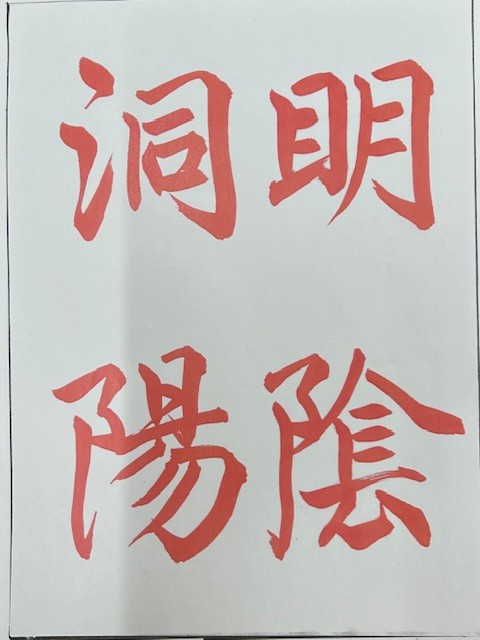 明陰
洞陽